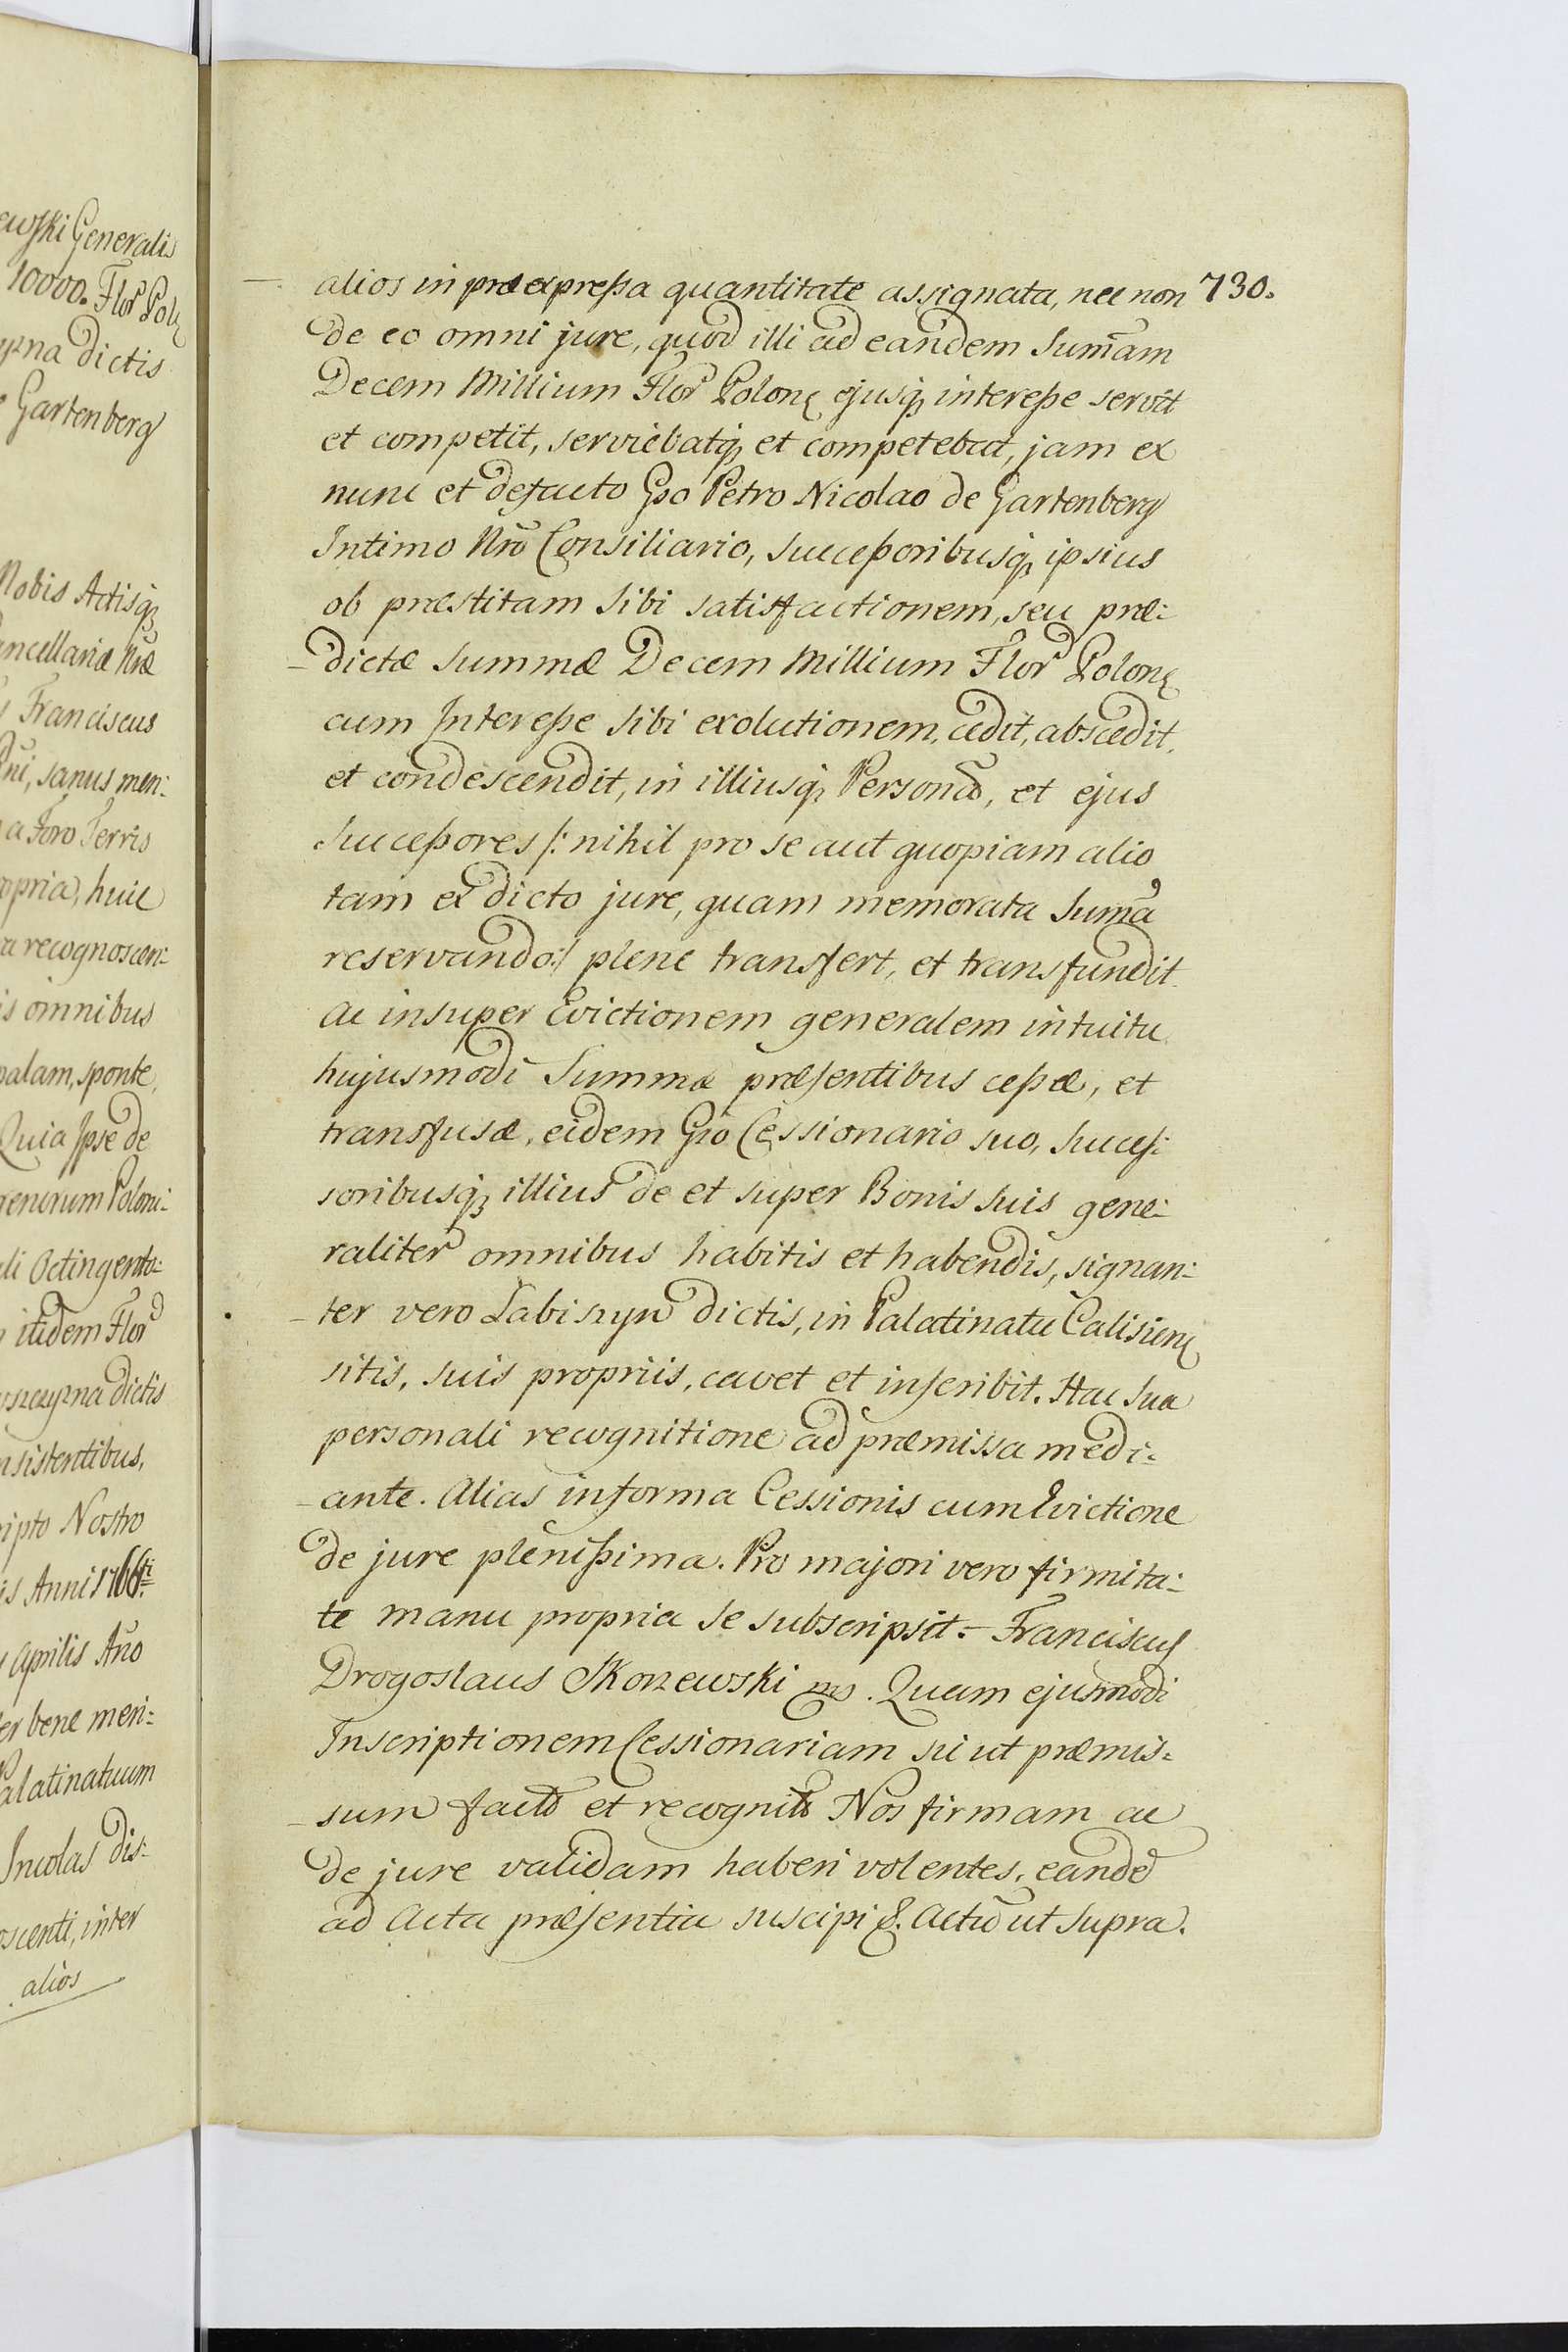 ewski Generalis
10000. Flor Polo
yzna dictis
Gartenberg
Nobis Actisq
ancellariæ Nræ
Franciscus
Dni, sanus men:
a Foro Terris
opria, huic
a recognoscen:
is omnibus
palam, sponte,
Quia Ipse de
renorum Poloni:
li Octingento:
itidem Flor
szczyzna dictis
nsistentibus,
ripto Nostro
is Anni 1766ti
Aprilis Año
er bene meri:
Palatinatuum
Incolas dis:
oscenti, inter
alios
730.
alios in præexpreßa quantitate assignata, nec non
de eo omni jure, quod illi ad eandem Sumam
Decem Millium Flor Polon ejusq intereße servit
et competit, serviebatq et competebat, jam ex
nunc et defacto Gso Petro Nicolao de Gartenberg
Intimo Nro Consiliario, Succeßoribusq ipsius
ob præstitam sibi satisfactionem, seu præ:
dictæ Summæ Decem Millium Flor Polon
cum Intereße sibi exolutionem, cedit, abscedit,
et condescendit, in illiusq Personā, et ejus
Succeßores /: nihil pro se aut quopiam alio
tam ex dicto jure, quam memorata Suma
reservando :/ plene transfert, et transfundit.
Ac insuper Evictionem generalem intuitu
hujusmodi Summæ præsentibus ceßæ, et
transfusæ, eidem Gso Cessionario suo, Succes:
soribusq illius de et super Bonis suis gene:
raliter omnibus habitis et habendis, signan:
ter vero Łabiszyn dictis, in Palatinatu Calisien
sitis, suis propriis, cavet et inscribit. Hac sua
personali recognitione ad præmissa medi:
ante. Alias in forma Cessionis cum Evictione
de jure pleníßima. Pro majori vero firmita:
te manu propria se subscripsit. Franciscus
Drogoslaus Skorzewski mp. Quam ejusmodi
Inscriptionem Cessionariam sic ut præmis:
sum factā et recognitā Nos firmam ac
de jure validam haberi volentes, eandē
ad Acta præsentia suscipi &. Actū ut supra.